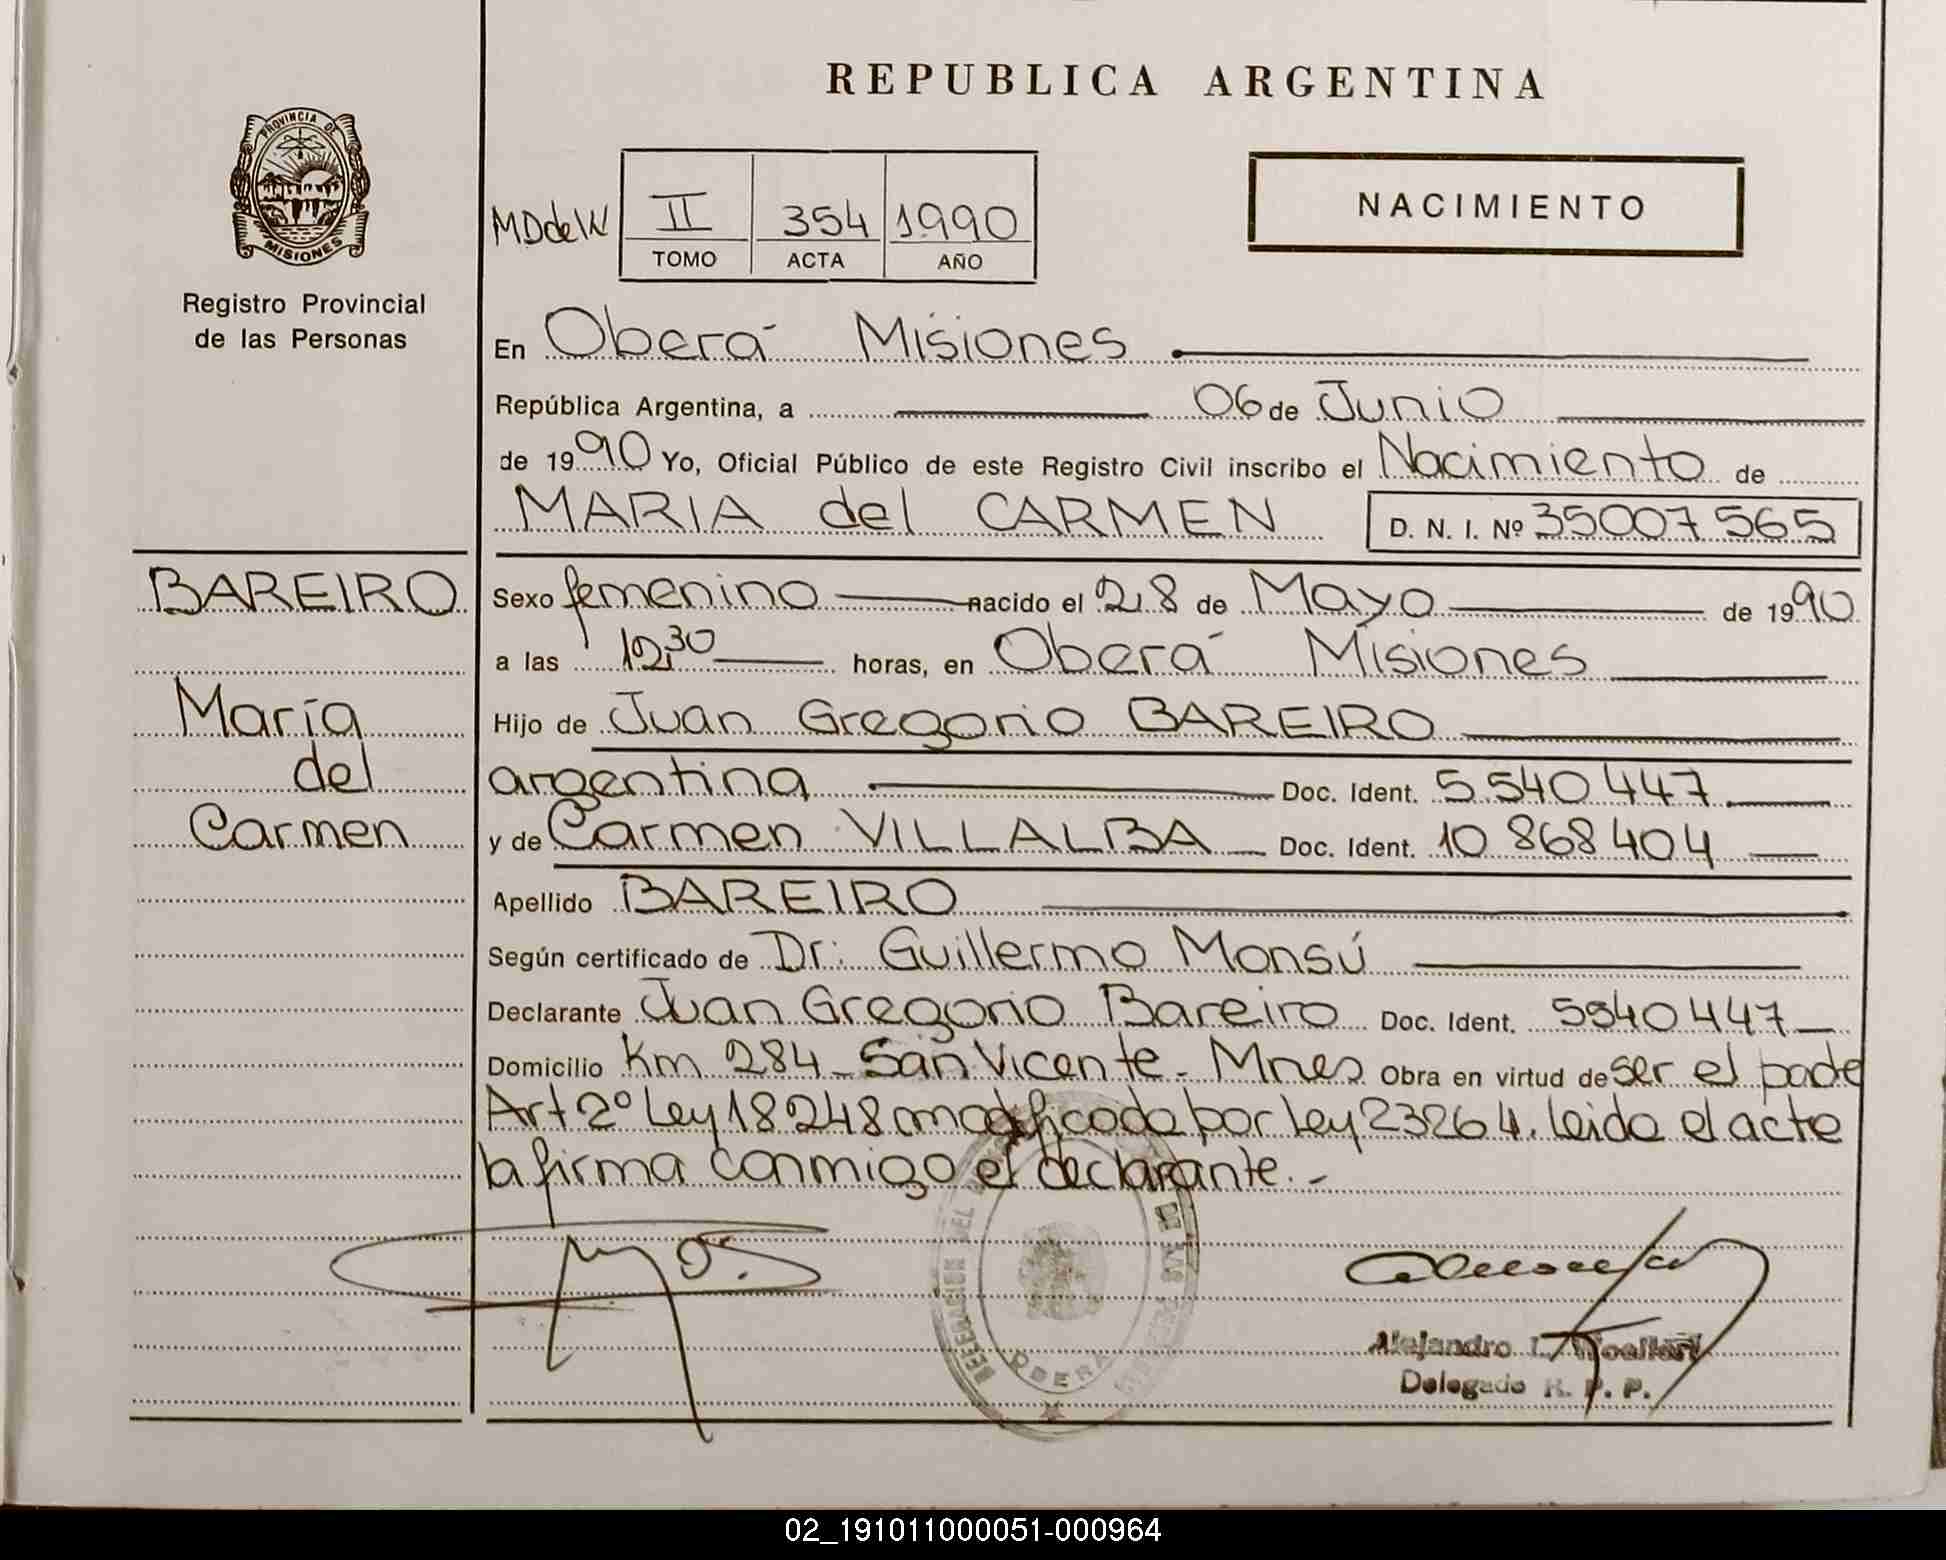 REPUBLICA ARGENTINA
PROVINCIA DE
MISIONES
Registro Provincial
de las Personas
NACIMIENTO
MDdeW II 354 1990
TOMO ACTA AÑO
En Oberá Misiones
República Argentina, a 06 de Junio
de 1990 Yo, Oficial Público de este Registro Civil inscribo el Nacimiento de
MARIA del CARMEN D. N. I. Nº 35007565
BAREIRO
María
del
Carmen
Sexo femenino nacido el 28 de Mayo de 1990
a las 12,30 horas, en Oberá Misiones
Hijo de Juan Gregorio BAREIRO
argentina Doc. Ident. 5540447
y de Carmen VILLALBA Doc. Ident. 10868404
Apellido BAREIRO
Según certificado de Dr: Guillermo Monsú
Declarante Juan Gregorio Bareiro Doc. Ident. 5540447
Domicilio Km 284 - San Vicente - Mnes Obra en virtud de ser el padre
Art 2º Ley 18248 modificada por Ley 23264. Leida el acta
la firma conmigo el declarante.-
DELEGACION DEL DE LAS PERSONAS
OBERA
Alejandro
Delegado R. P. P.
02_191011000051-000964